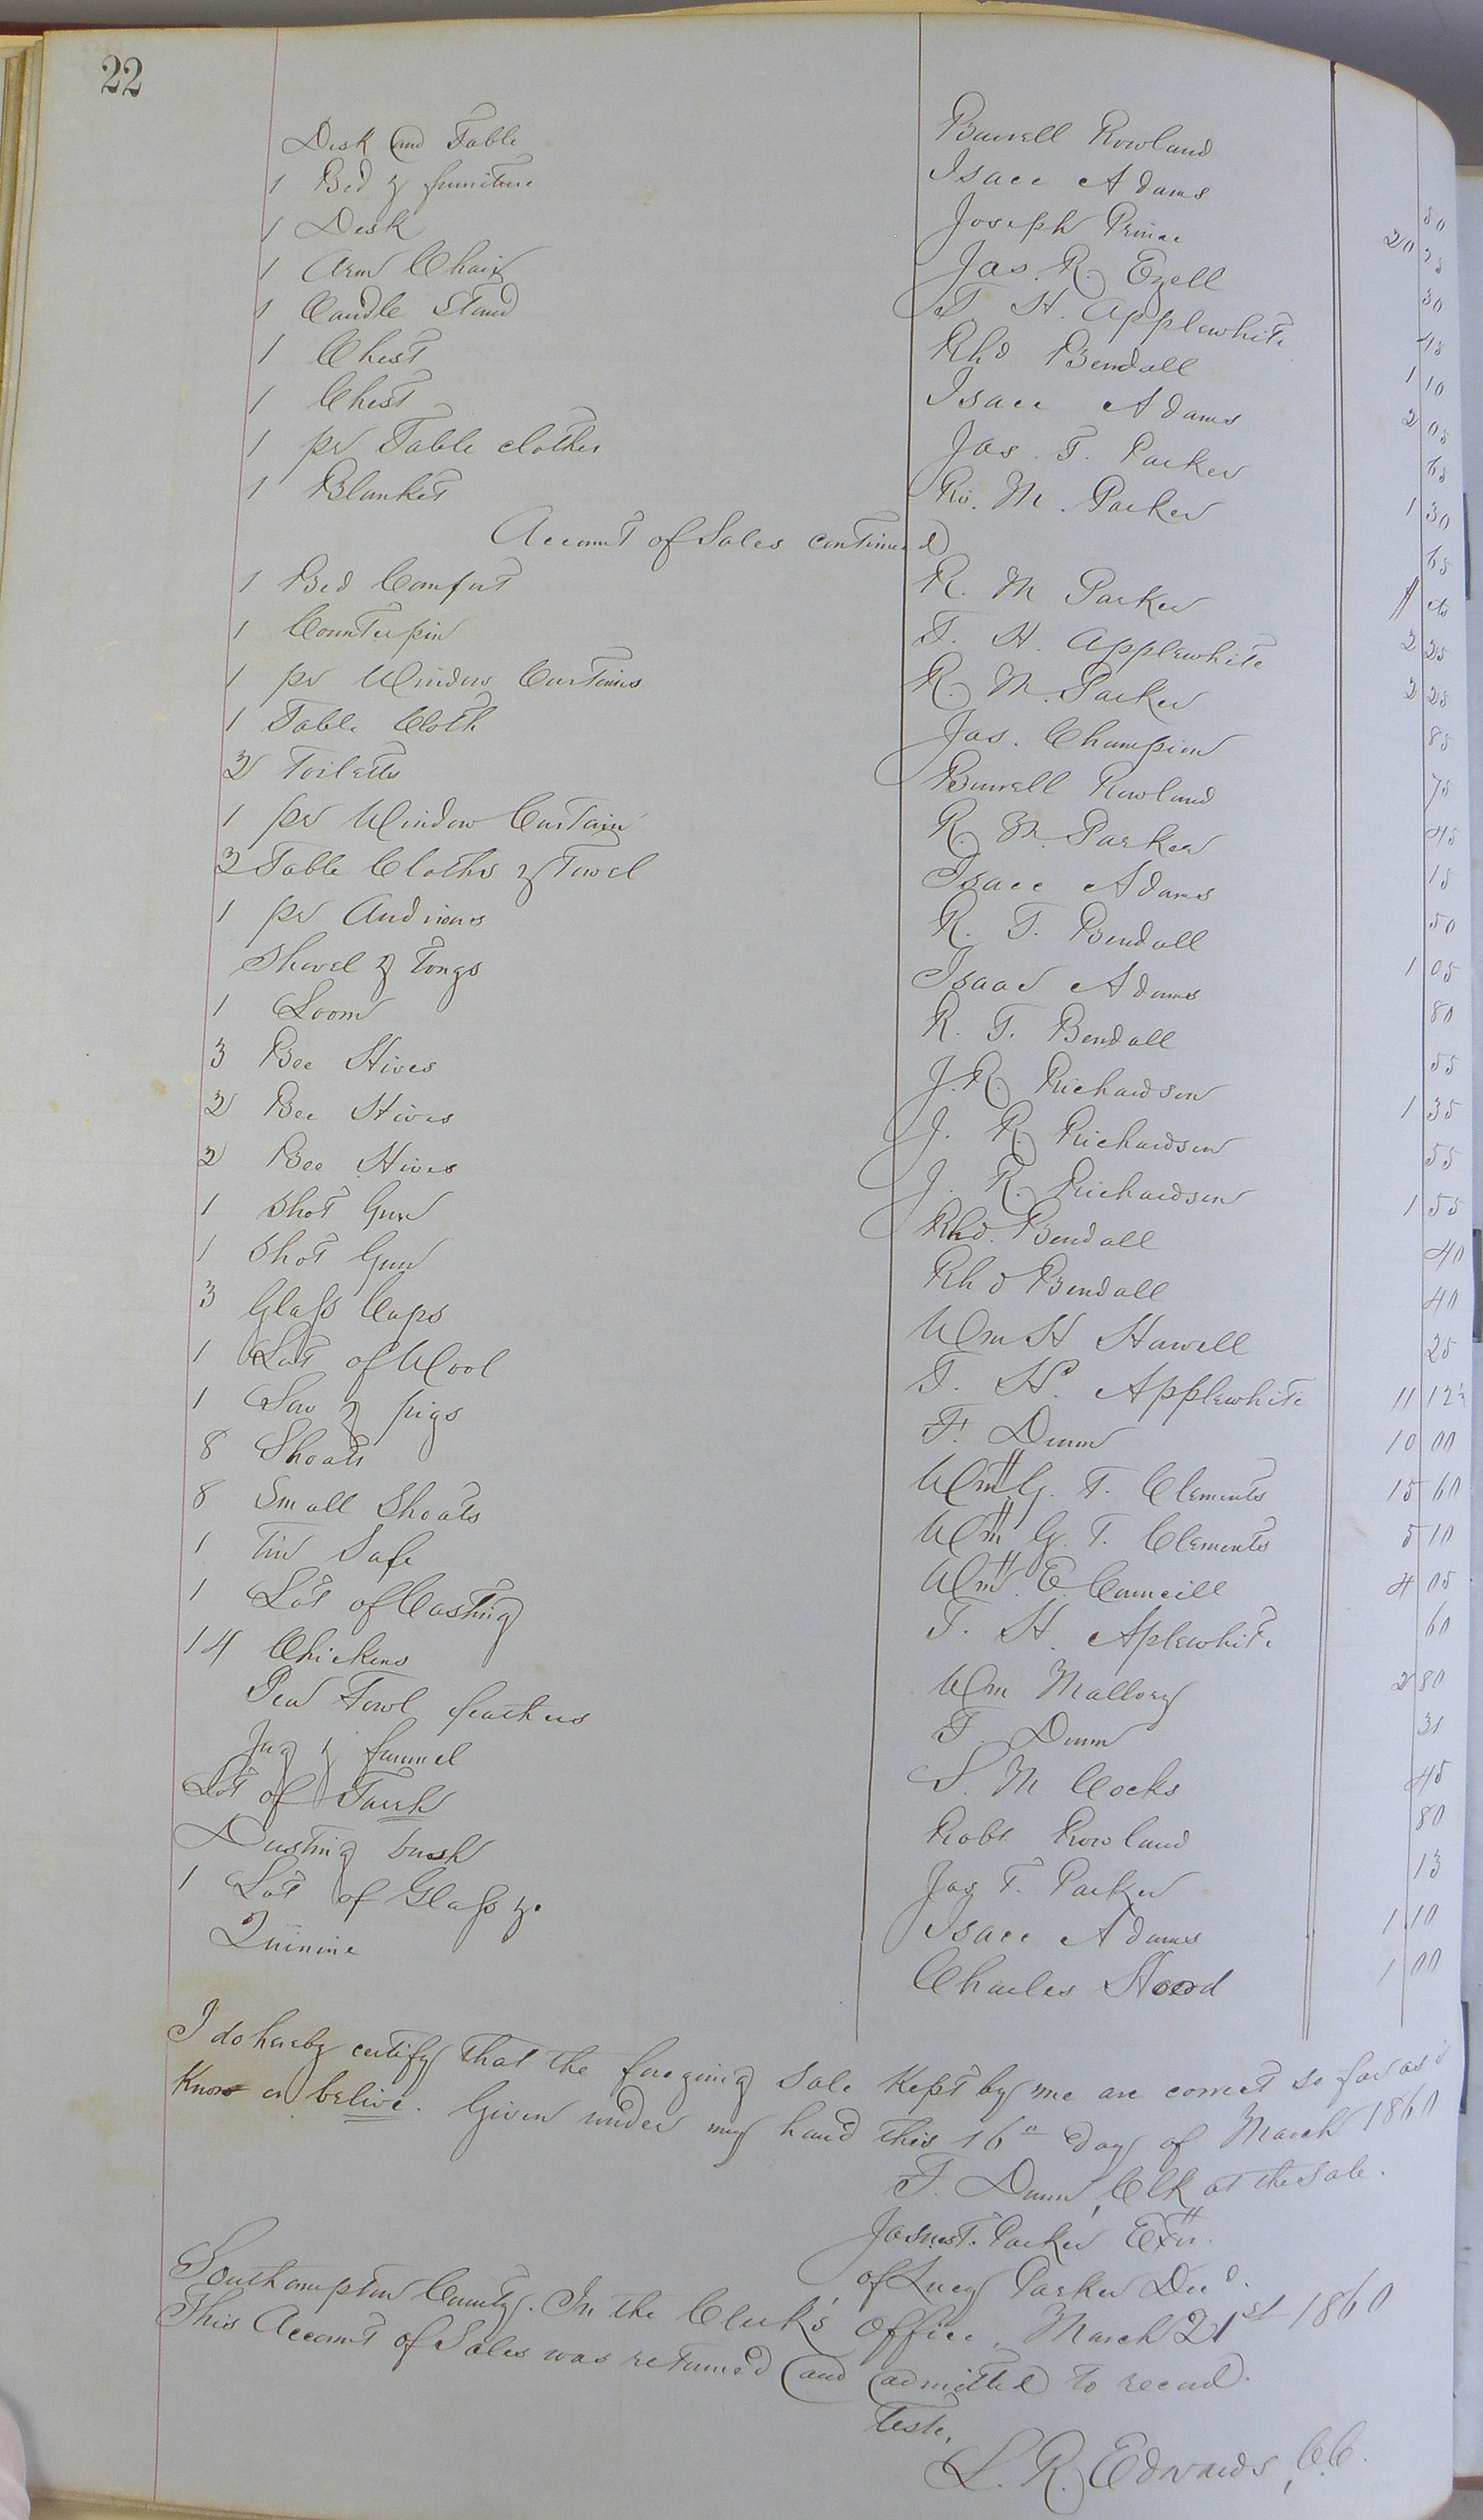 22
Desk and Table Burrell Rowland 50
1 Bed & furniture Isacc Adams 20
1 Desk Joseph Prince 30
1 Arm Chair Jas. R. Ezell 45
1 Candle Stand T. H. Applewhite 1 10
1 Chest Rhd Bendall 2 05
1 Chest Isacc Adams
1 pr Table clothes Jas. T. Parker 1 30
1 Blanket Ro. M. Parker
Account of Sales continued
1 Bed Comfort R. M Parker
1 Counterpin T. H. Applewhite 2 25
1 pr Window Curtains R. M. Parker 2 25
1 Table Cloth Jas. Champion 85
2 Toiletts Burrell Rowland 75
1 pr Window Curtain R. M. Parker 45
2 Table Cloths & Towel Isacc Adams 15
1 pr Andirons R. T. Bendall 50
Shovel & Tongs Isaac Adams 1 05
1 Loom R. T. Bendall 80
3 Bee Hives J. R. Richardson 55
2 Bee Hives J. R. Richardson 1 35
2 Bee Hives J. R. Richardson 55
1 Shot Gun Rhd. Bendall 1 55
1 Shot Gun Rhd Bendall 40
3 Glass Cups Wm H Hawell 40
1 Lot of Wool T. H. Applewhite 25
1 Sow & pigs F. Dunn 11 12½
8 Shoats Wm G. T. Clements 10 00
8 Small Shoats Wm G. T. Clements 15 60
1 Tin Safe Wm. E. Councill 5 10
1 Lot of Casting T. H. Aplewhite 4 05
14 Chickens Wm Mallory 60
Pea Fowl feathers F. Dunn 2 80
Jug & funnel S. M Cocks 31
Lot of Robt. Rowland 45
Dusting brush Jas T. Parker 80
1 Lot of Glass &. Isacc Adams 13
Quinine Charles Hood 1 10
1 00
I do hereby certify that the foregoing Sale kept by me are correct so far as I
Know or belive. Given under my hand this 16th day of March 1860
F. Dunn, Clk at the Sale.
James T. Parker Exr.
of Lucy Parker Decd.
Southampton County. In the Clerk's Office, March 21st 1860
This Account of Sales was returned and admitted to record.
Teste,
L. R. Edwards, C.C.